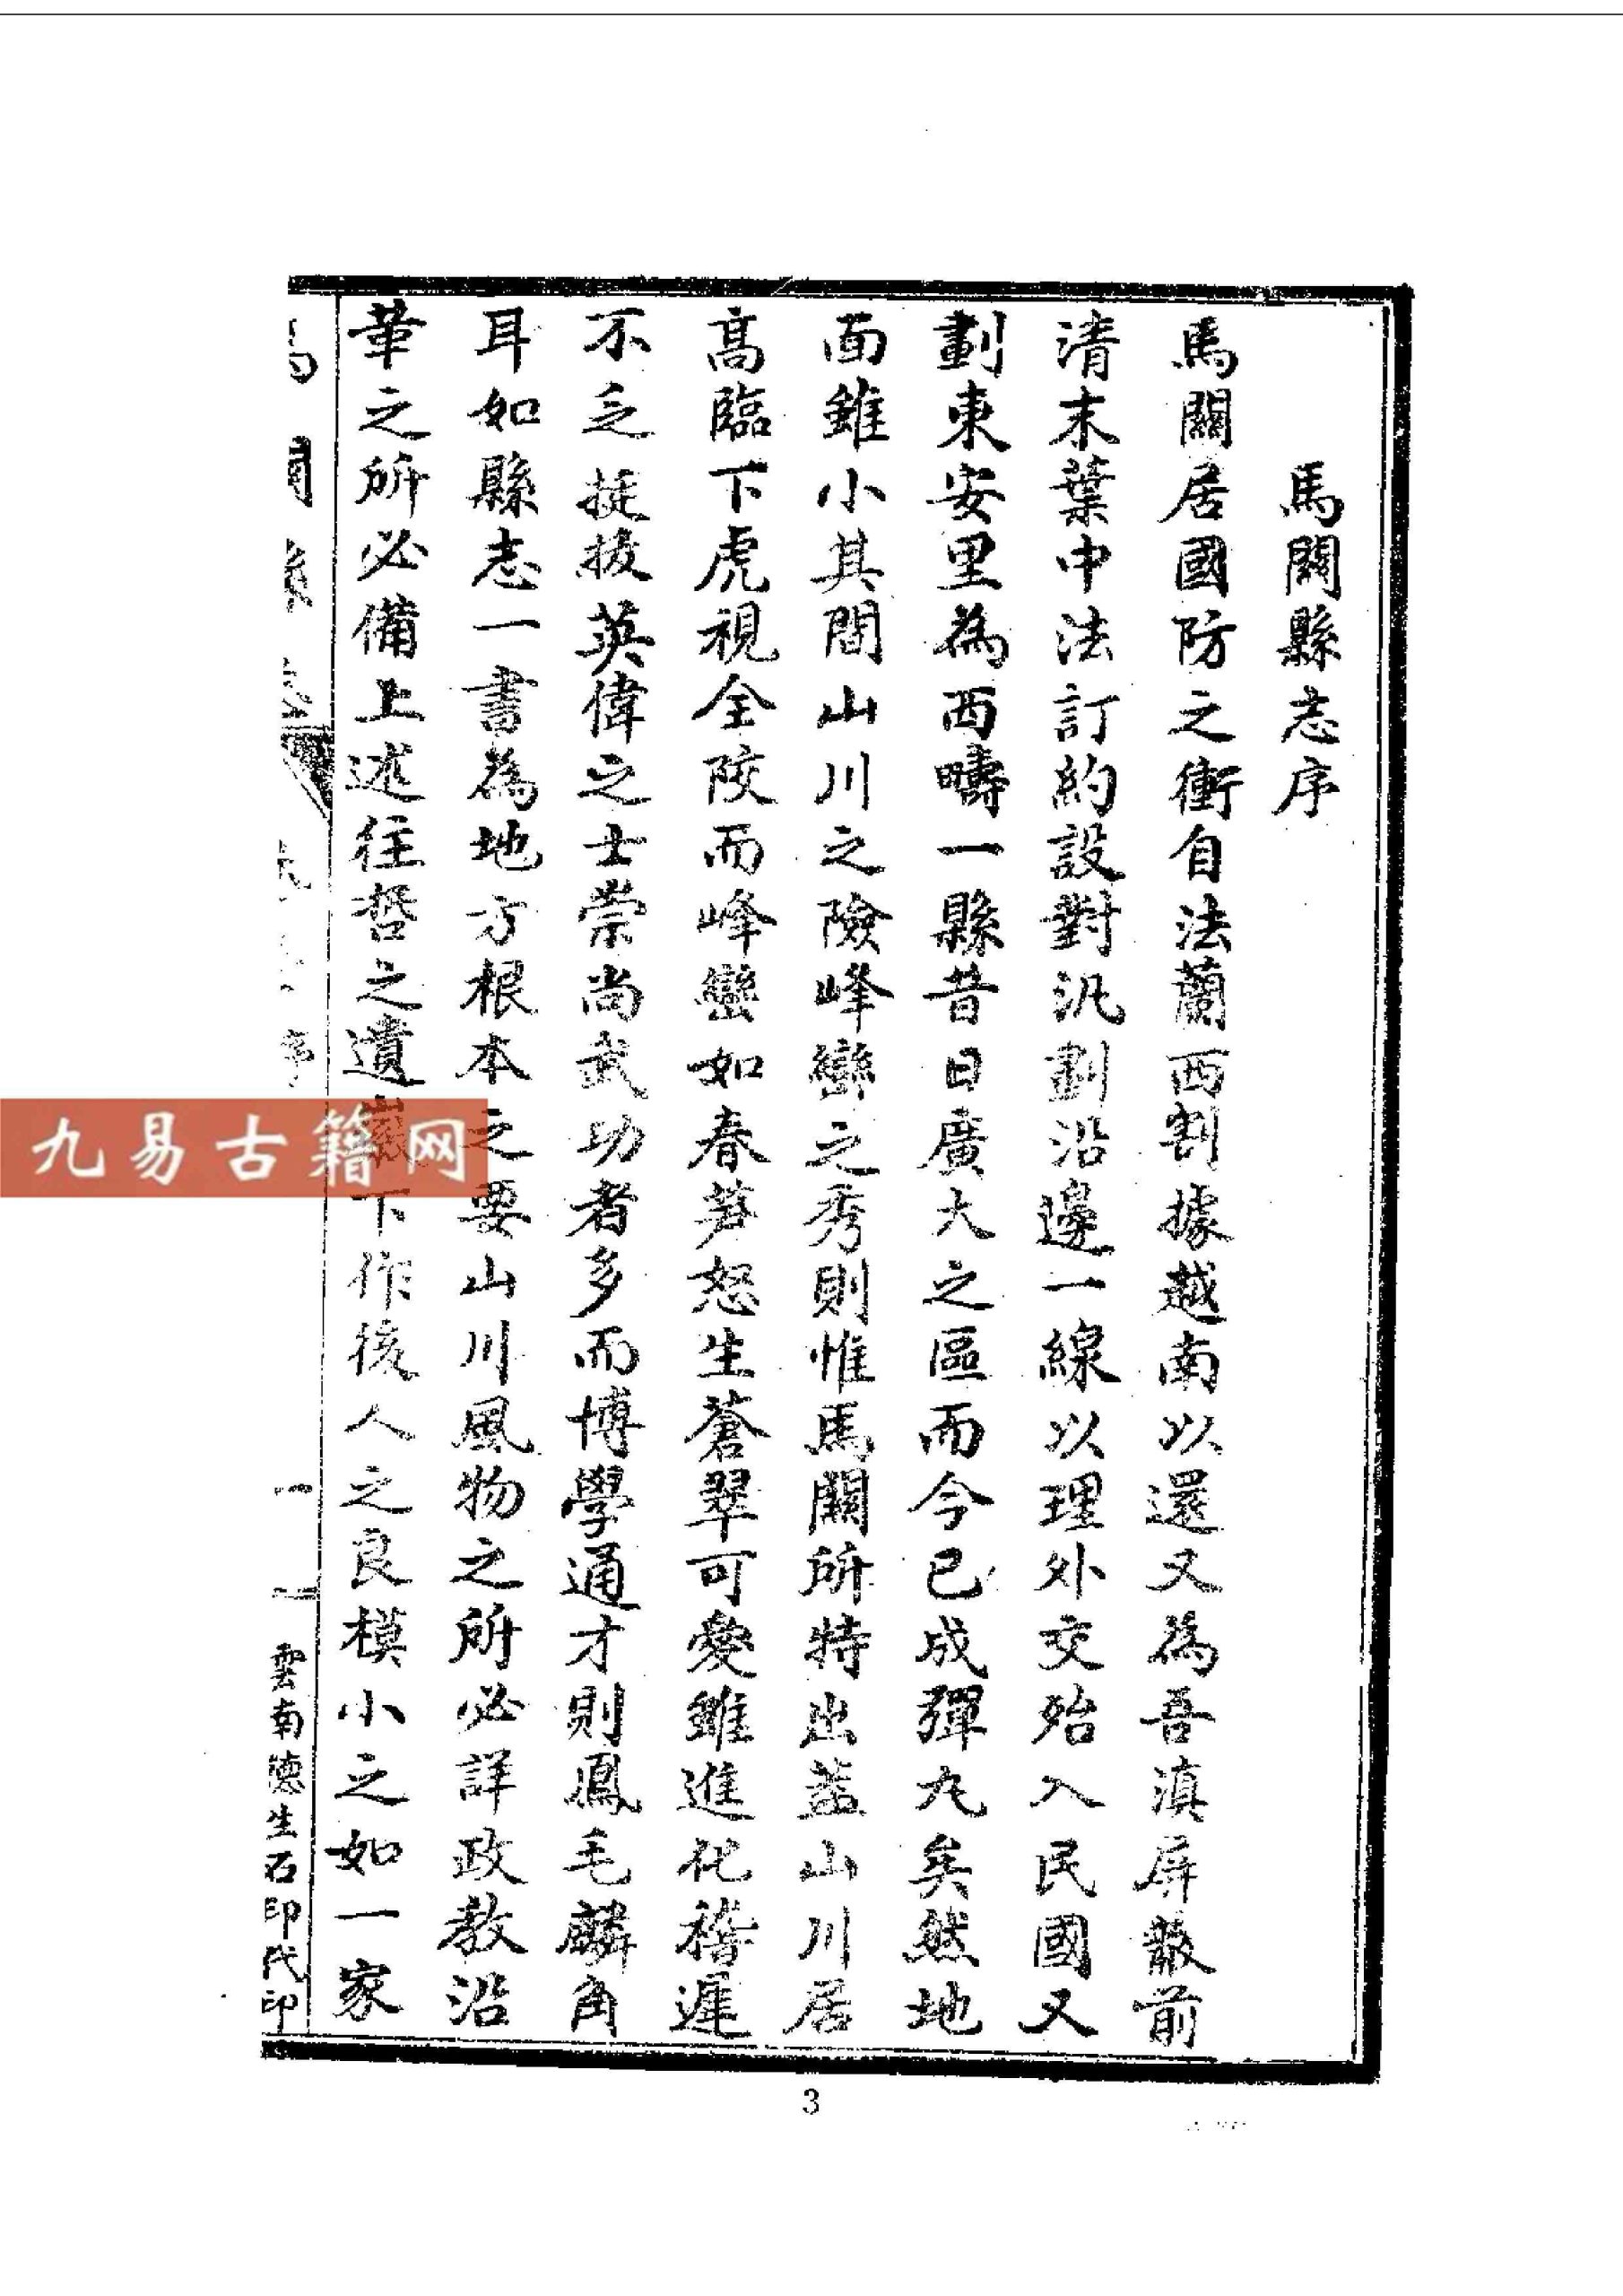 馬關縣志序
馬關居國防之衝自法蘭西割據越南以還又為吾滇屏蔽前
清末葉中法訂約設對汛劃沿邊一線以理外交殆入民國又
劃東安里為西疇一縣昔日廣大之區而今已成彈丸矣然地
面雖小其間山川之險峰巒之秀則惟馬關所特出蓋山川居
高臨下虎視全陂而峰巒如春笋怒生蒼翠可愛雖進化稽遲
不乏挺拔英偉之士崇尚武功者多而博學通才則鳳毛麟角
耳如縣志一書為地方根本之要山川風物之所必詳政教沿
革之所必備上述往哲之遺下作後人之良模小之如一家
一
雲南德生石印代印
九易古籍网
3